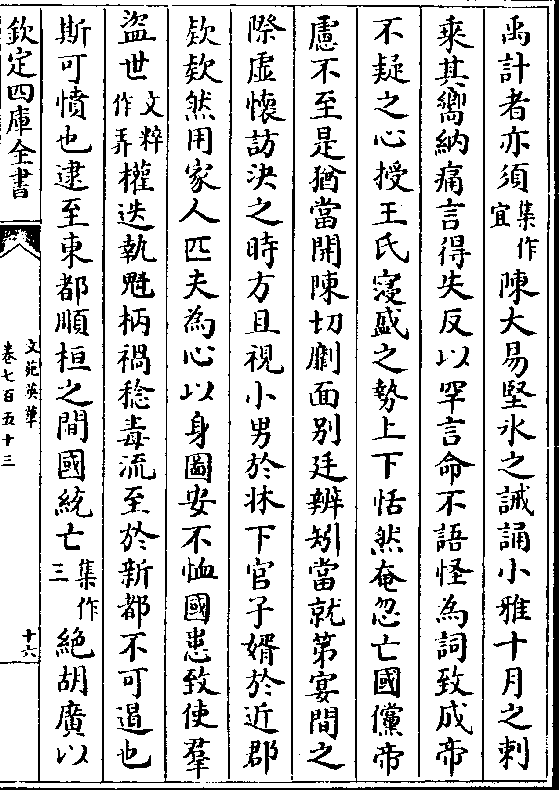 禹計者亦須集作宜陳大易堅氷之誡誦小雅十月之刺
乗其嚮納痛言得失反以罕言命不語怪為詞致成帝
不疑之心授王氏寖盛之勢上下恬然奄忽亡國儻帝
慮不至是猶當開陳切劘面別廷辨矧當就第宴間之
際虚懷訪決之時方且視小男於牀下官子婿於近郡
欵欵然用家人匹夫為心以身圖安不恤國患致使羣
盜世文粹作弄權迭執魁柄禍稔毒流至於新都不可遏也
斯可憤也逮至東都順桓之間國統亡集作三絶胡廣以
欽定四庫全書
文苑英華
卷七百五十三
十六